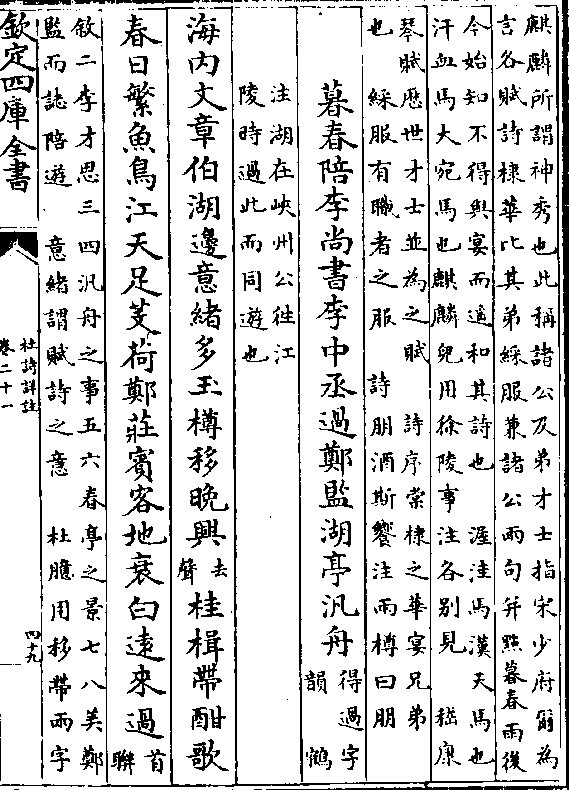 麒麟所謂神秀也此稱諸公及弟才士指宋少府爾為
言各賦詩棣華比其弟綵服兼諸公兩句并點暮春雨後
今始知不得與宴而遙和其詩也　渥洼馬漢天馬也
汗血馬大宛馬也麒麟兒用徐陵事注各別見　嵇康
琴賦歷世才士並為之賦　詩序棠棣之華宴兄弟
也　綵服有職者之服　詩朋酒斯饗注兩樽曰朋
暮春陪李尚書李中丞過鄭監湖亭汎舟得過字韻　鶴
注湖在峽州公往江
陵時過此而同遊也
海內文章伯湖邊意緒多玉樽移晚興去聲桂楫帶酣歌
春日繁魚鳥江天足芰荷鄭莊賓客地衰白遠來過首聯
敘二李才思三四汎舟之事五六春亭之景七八美鄭
監而誌陪遊　意緒謂賦詩之意　杜臆用移帶兩字
欽定四庫全書
杜詩詳註
卷二十一
四十九